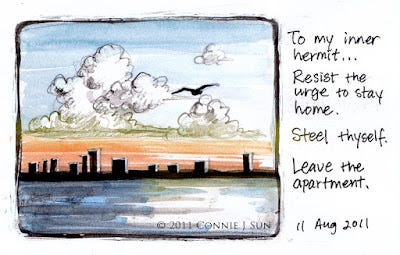 To my inner
hermit...
Resist the
urge to stay
home.
Steel thyself.
Leave the
apartment.
11 Aug 2011
© 2011 CONNIE J SUN